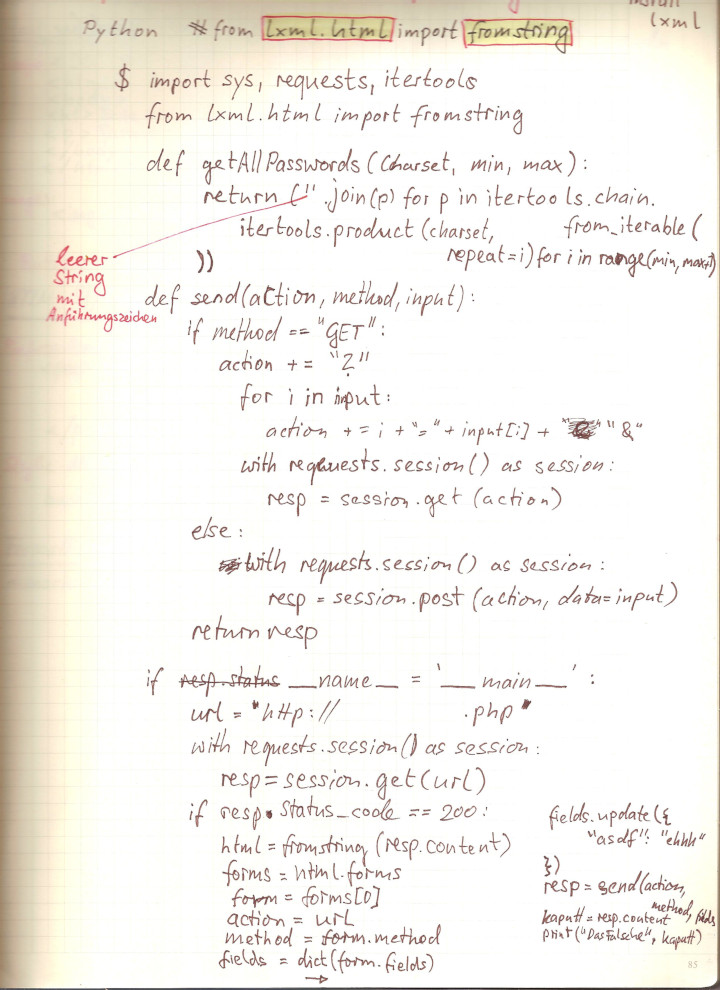 lxml
Python # from lxml.html import fromstring
$ import sys, requests, itertools
from lxml.html import fromstring
def getAllPasswords (Charset, min, max):
return (''.join(p) for p in itertools.chain.
from_iterable(
itertools.product (charset,
repeat=i) for i in range(min, max+1)
))
leerer
String
mit
Anführungszeichen
def send(action, method, input):
if method == "GET":
action += "?"
for i in input:
action += i + "=" + input[i] + "&"
with requests.session() as session:
resp = session.get (action)
else:
with requests.session() as session:
resp = session.post (action, data=input)
return resp
if resp.status __name__ = '__main__':
url = "http:// .php"
with requests.session() as session:
resp=session.get(url)
if resp.status_code == 200:
html = fromstring (resp.content)
forms = html.forms
form = forms[0]
action = url
method = form.method
fields = dict(form.fields)
→
fields.update({
"asdf": "ehhh"
})
resp = send(action,
method, fields
kaputt = resp.content
print("DasFalsche", kaputt)
85